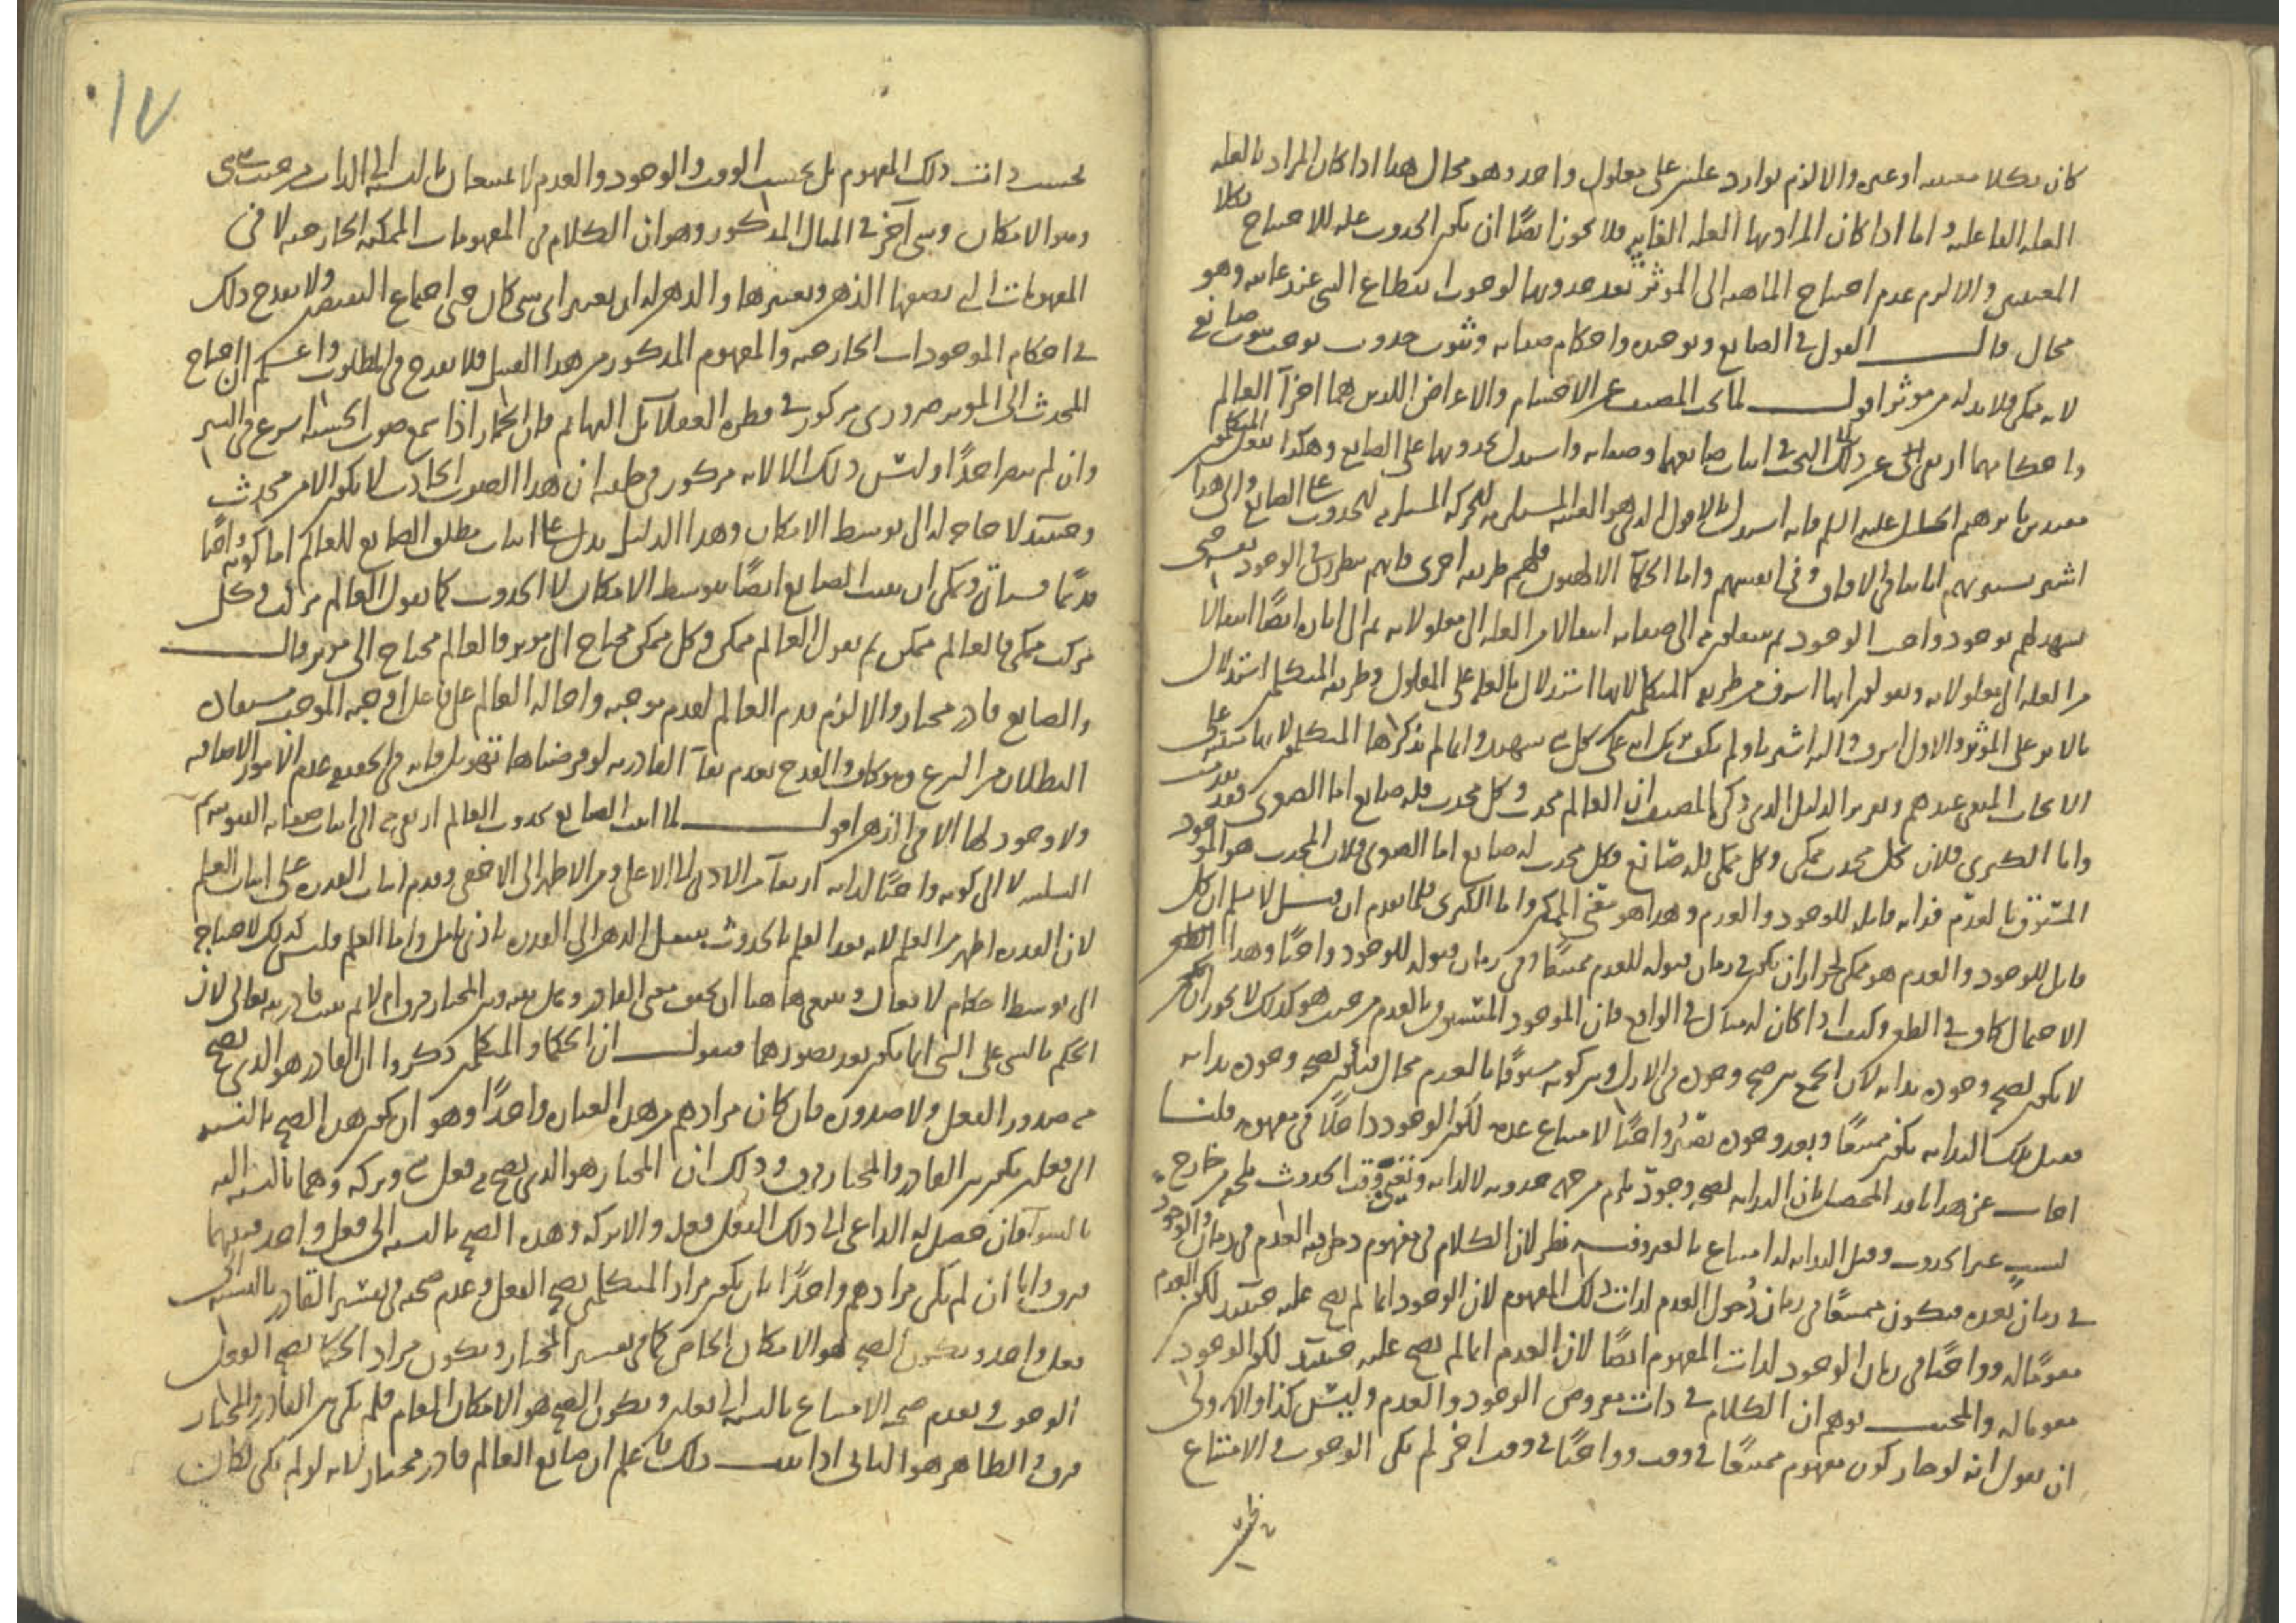 كان بكلا معنييه او غيره والا لزم توارد علتين على معلول واحد وهو محال هذا اذا كان المراد بالعلة
العلة الفاعلية واما اذا كان المراد بها العلة الغائية فلا يجوز ايضًا ان يكون الحدوث علة للاحتياج بكلا
المعنيين والا لزم عدم احتياج الماهية الى المؤثر بعد حدوثها لوجوب انقطاع الشى عند غايته وهو
محال قال القول فى الصانع وتوحيده واحكام صفاته وثبوت حدوث يوجب ثبوت صانع
لانه ممكن فلا بد له من موثر اقول لما بحث المصنف عن الاجسام والاعراض اللذين هما اجزآ العالم
واحكامهما ارتقى عن ذلك البحث الى اثبات صانعهما وصفاته واستدل بحدوثها على الصانع وهكذا يفعل المتكلمون
مقتدين بابرهيم الخليل عليه السلم فانه استدل بالافول الذى هو الغيبة المستلزمة للحركة المستلزمة للحدوث على الصانع والى هذا
اشير سنريهم اياتنا فى الافاق وفى انفسهم واما الحكمآ الالاهيون فلهم طريقة اخرى فانهم ينظرون فى الوجود حتى
يشهد لهم بوجود واجب الوجود ثم ينتقلون منه الى صفاته انتقالا من العلة الى معلولاته ثم الى اثاره ايضًا انتقالا
من العلة الى معلولاته ويقولون انها اشرف من طريقة المتكلم لانها استدلال بالعلة على المعلول وطريقة المتكلم استدلال
بالاثر على المؤثر والاول اشرف واليه اشير باولم يكف بربك انه على كل شى شهيد وانما لم يذكرها المتكلمون لابتنائها على
الابحاث المنفى عندهم وتقرير الدليل الذى ذكره المصنف ان العالم محدث وكل محدث فله صانع اما الصغرى فقد تقدمت
واما الكبرى فلان كل محدث ممكن وكل ممكن فله صانع فكل محدث له صانع اما الصغرى فلان المحدث هو الموجود
المسبوق بالعدم فذاته قابلة للوجود والعدم وهذا هو معنى الممكن واما الكبرى فلما تقدم ان قيل لا نسلم ان كل
قابل للوجود والعدم هو ممكن لجواز ان يكون فى زمان قبوله للعدم ممتنعًا وفى زمان قبوله للوجود واجبًا وهذا
الاحتمال كاف فى الطعن وكيف اذا كان له مثال فى الواقع فان الموجود المسبوق بالعدم من حيث هو كذلك لا يجوز ان
لا يكون لصحة وجوده بداية لان الجمع بين صحة وجوده فى الازل وبين كونه مسبوقًا بالعدم محال فتكون لصحة وجوده بداية
فقبل تلك البداية يكون ممتنعًا وبعد وجوده يصير واجبًا لامتناع عدمه لكون الوجود داخلًا فى مفهومه قلنا
اجاب عن هذا ناقد المحصل بان البداية لصحة وجوده يلزم من جهة حدوثه لا لذاته وتعين وقت الحدوث يلحقه من خارج
لسببٍ غير الحدوث وقبل البداية له امتناع بالغير وفيه نظر لان الكلام فى مفهوم دخل فيه العدم فى زمان والوجود
فى زمان بعده فيكون ممتنعًا فى زمان دُخول العدم لذات ذلك المفهوم لان الوجود انما لم يصح عليه حينئذ لكون العدم
مقومًا له وواجبًا فى زمان الوجود لذات المفهوم ايضًا لان العدم انما لم يصح عليه حينئذ لكون الوجود
مقوما له والمجيب توهم ان الكلام فى ذات معروض الوجود والعدم وليس كذا والاولى
ان نقول انه لو جاز كون مفهوم ممتنعًا فى وقت وواجبًا فى وقت اخر لم يكن الوجوب والامتناع
بحسب
١٧
بحسب ذات ذلك المفهوم بل بحسب الوقت والوجود والعدم لا يمتنعان بالنسبة الى الذات من حيث هى
وهو الامكان وشى آخر فى المثال المذكور وهو ان الكلام فى المفهومات الممكنة الخارجية لا فى
المفهومات التى يضعها الذهن ويعتبرها والذهن له ان يعتبر اى شى كان حتى اجتماع النقيضين ولا يقدح ذلك
فى احكام الموجودات الخارجية والمفهوم المذكور من هذا القبيل فلا يقدح فى المطلوب واعلم ان احتياج
المحدث الى المؤثر ضرورى مركوز فى فطرة العقلآ بل البهائم فان الحمار اذا سمع صوت الخشبة اسرع فى السير
وان لم يبصر احدًا وليس ذلك الا لانه مركوز فى طبعه ان هذا الصوت الحادث لا يكون الا من محدث
وحينئذ لا حاجة له الى توسط الامكان وهذا الدليل يدل على اثبات مطلق الصانع للعالم اما كونه واجبا
قديمًا فسيأتى ويمكن ان يثبت الصانع ايضًا بتوسط الامكان لا الحدوث كما نقول العالم مركب وكل
مركب ممكن فالعالم ممكن ثم نقول العالم ممكن وكل ممكن محتاج الى موثر فالعالم محتاج الى موثر قال
والصانع قادر مختار والا لزم قدم العالم لقدم موجبه واحالة العالم على فاعل اوجبه الموجب مستفاد
البطلان من الشرع وهو كاف والقدح بعدم بقآ القادرية لو فرضناها تهويل فانه فى التحقيق عدم الامور الاضافية
ولا وجود لها الا فى الذهن اقول لما اثبت الصانع بحدوث العالم ارتقى منه الى اثبات صفاته الثبوتية ثم
السلبية لا الى كونه واجبًا لذاته ارتقآ من الادنى الى الاعلى ومن الاظهر الى الاخفى وقدم اثبات القدرة على اثبات العلم
لان القدرة اظهر من العلم لانه بعد العلم بالحدوث ينتقل الذهن الى القدرة باذنى تامل واما العلم فليس كذلك لاحتياجه
الى توسط احكام الافعال وينبغى هاهنا ان يحقق معنى القادر وهل بينه وبين المختار فرق ام لا ثم نثبت قادريته تعالى لان
الحكم بالشى على الشى انما يكون بعد تصورهما فنقول ان الحكما والمتكلمين ذكروا ان القادر هو الذى يصح
منه صدور الفعل ولا صدوره فان كان مرادهم من هذه العبارة واحدًا وهو ان يكون هذه الصحة بالنسبة
الى فعل يكون بين القادر والمختار فرق وذلك ان المختار هو الذى يصح منه فعل شى وتركه وهما بالنسبة اليه
بالسوآ فان حصل له الداعى الى ذلك الفعل فعله والا تركه وهذه الصحة بالنسبة الى فعل واحد فبينهما
فرق واما ان لم يكن مرادهم واحدًا بان يكون مراد المتكلمين بصحة الفعل وعدم صحته فى تفسير القادر بالنسبة الى
فعل واحد ويكون الصحة هو الامكان الخاص كما فى تفسير المختار ويكون مراد الحكما بصحة الفعل
الوجوب وبعدم صحته الامتناع بالنسبة الى فعله ويكون الصحة هو الامكان العام فلم يكن بين القادر والمختار
فرق والظاهر هو الثانى اذا ثبت ذلك فاعلم ان صانع العالم قادر مختار لانه لو لم يكن لكان